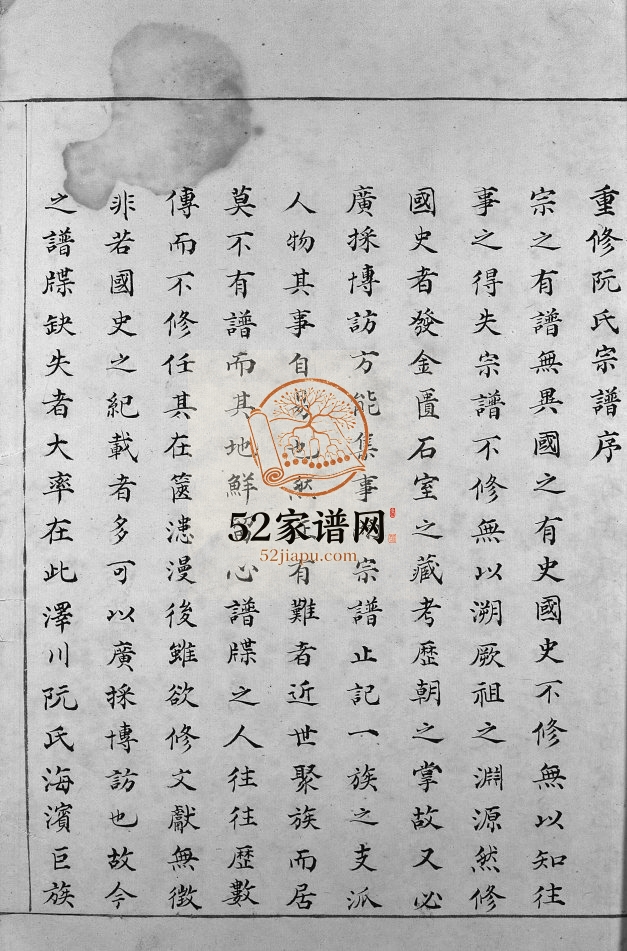 重修阮氏宗譜序
宗之有譜無異國之有史國史不修無以知往
事之得失宗譜不修無以溯厥祖之淵源然修
國史者發金匱石室之藏考歷朝之掌故又必
廣採博訪方能集事宗譜止記一族之支派
人物其事自易也有難者近世聚族而居
莫不有譜而其地鮮心譜牒之人往往歷數
傳而不修任其在篋漶漫後雖欲修文獻無徵
非若國史之紀載者多可以廣採博訪也故今
之譜牒缺失者大率在此澤川阮氏海濱巨族
52家谱网
52jiapu.com